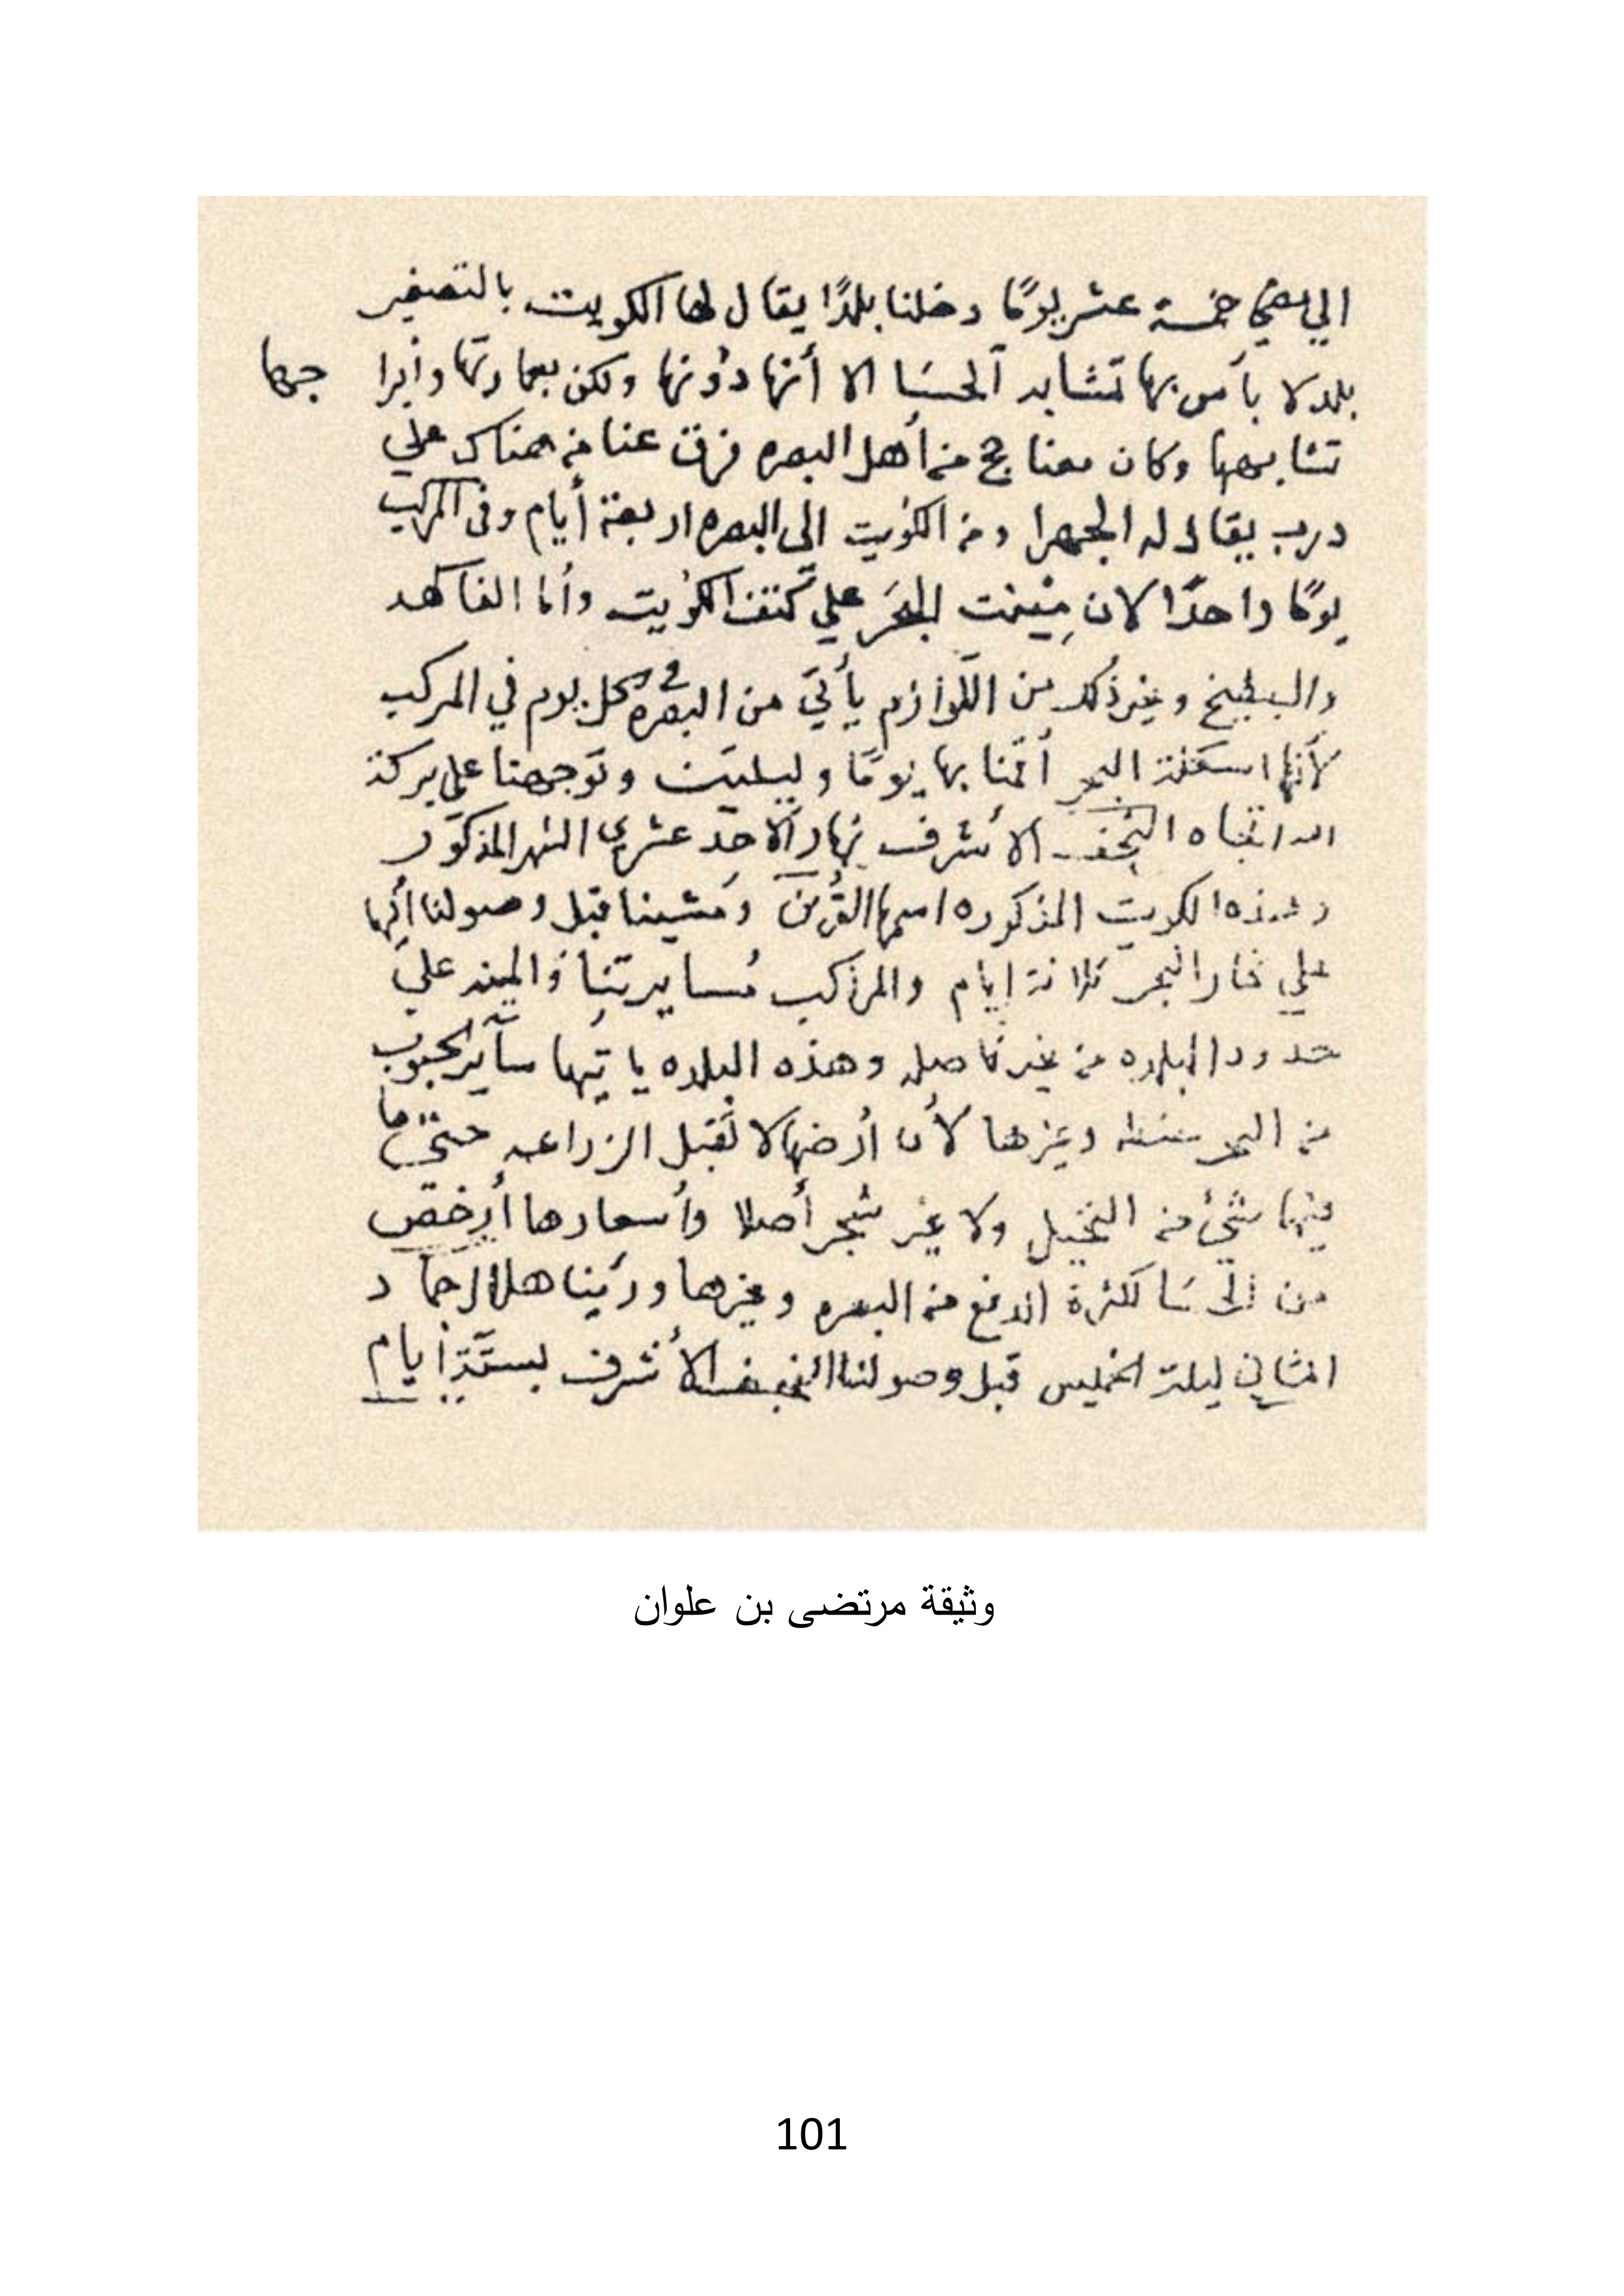 الي يضي خمسة عشر يومًا دخلنا بلدًا يقال لها الكويت بالتصغير
بلد لا بأس بها تشابه الحسا الا أنها دونها ولكن بعمارتها وابرا جها
تشابهها وكان معنا حج من أهل البصره فرق عنا من هناك علي
درب يقال له الجهرا ومن الكويت الى البصره اربعة أيام وفى المركب
يومًا واحدًا لان مينت البحر علي كتف الكويت وأما الفاكهه
والبطيخ وغير ذلك من اللوازم يأتي من البصره في كل يوم في المركب
لأنها اسكلة البحر أقمنا بها يومًا وليلتين وتوجهنا على بركة
الله اتجاه النجف الاشرف نهار الاحد عشري الشهر المذكور
وهذه الكويت المذكوره اسمها القرين ومشينا قبل وصولنا إليها
علي غار البحر ثلاثة ايام والمراكب مسايرتنا والمينه علي
حدود البلده من غير فاصله وهذه البلده ياتيها سآير الحبوب
من البحر حنطه وغيرها لأن أرضها لا تقبل الزراعه حتى ما
فيها شئ من النخيل ولا غير شجر أصلا وأسعارها أرخص
من الحسا لكثرة الدفع من البصره وغيرها ورئينا هلال جماد
الثاني ليلة الخميس قبل وصولنا النجف الأشرف بستة أيام
وثيقة مرتضى بن علوان
101